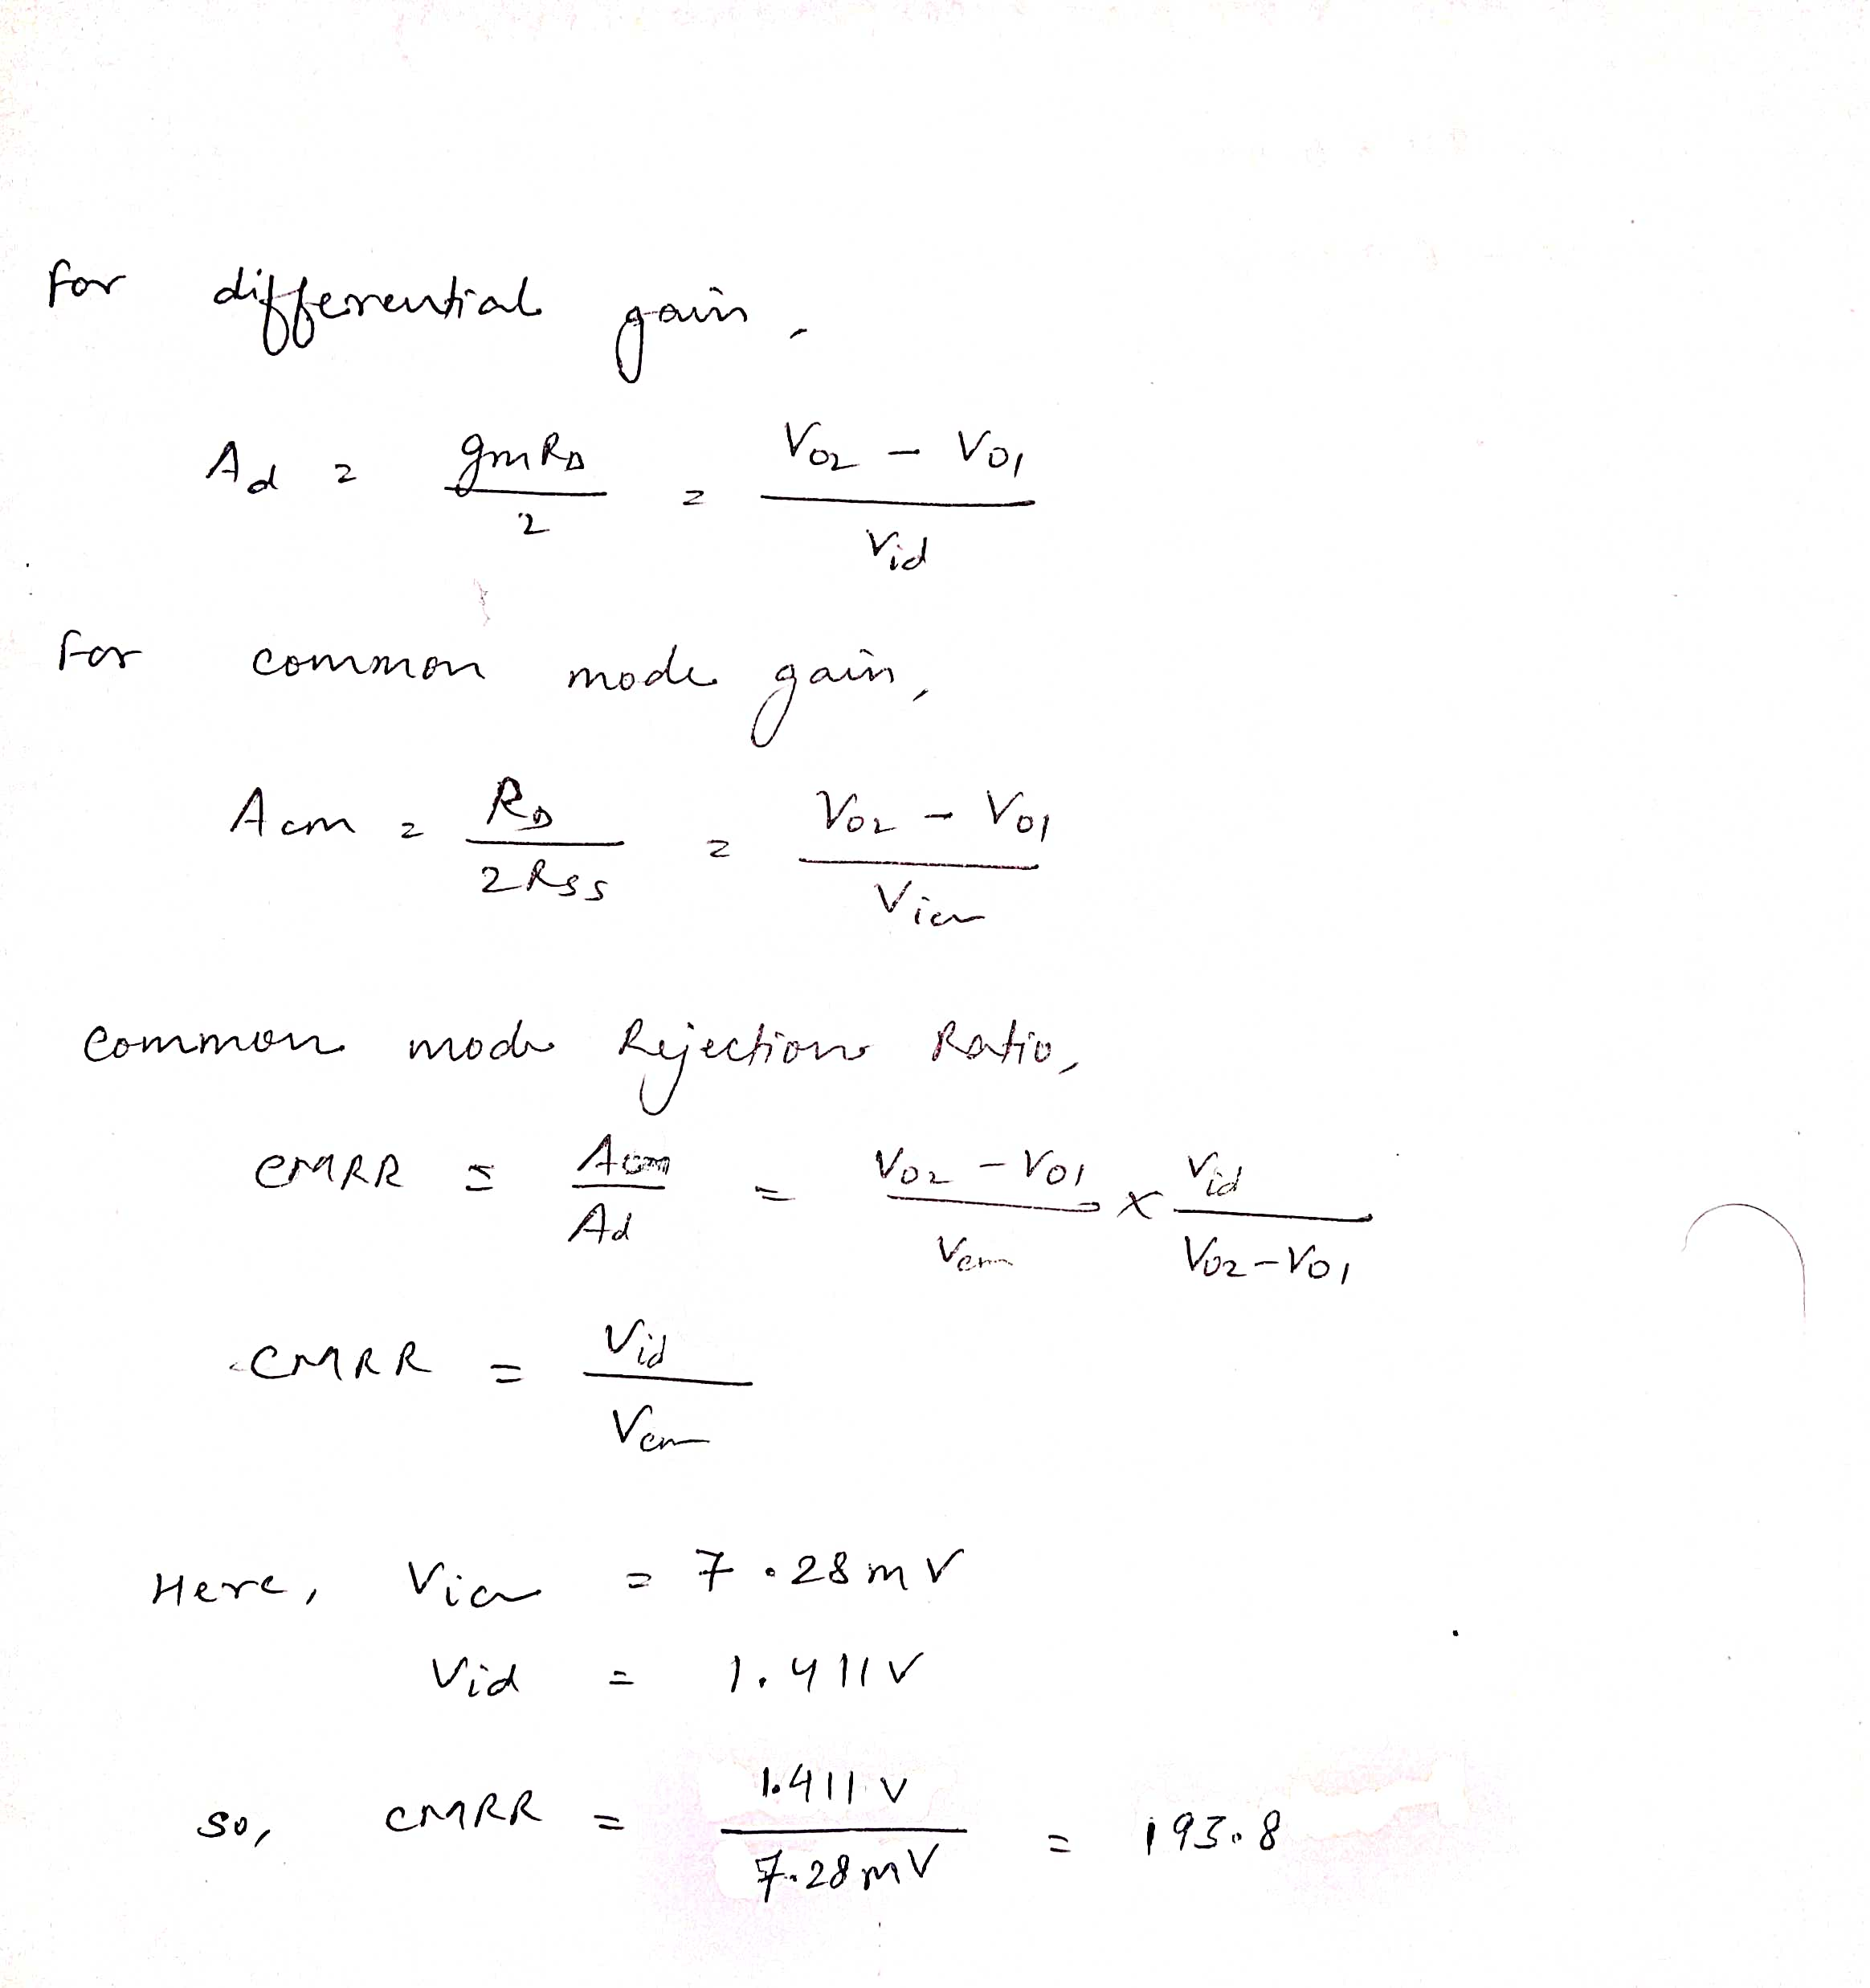 For differential gain,
Ad = gmRD / 2 = Vo2 - Vo1 / Vid
For common mode gain,
Acm = RD / 2Rss = Vo2 - Vo1 / Vicm
Common mode Rejection Ratio,
CMRR = Acm / Ad = Vo2 - Vo1 / Vcm × Vid / Vo2 - Vo1
CMRR = Vid / Vcm
Here, Vicm = 7.28mV
Vid = 1.411V
So, CMRR = 1.411V / 7.28mV = 193.8